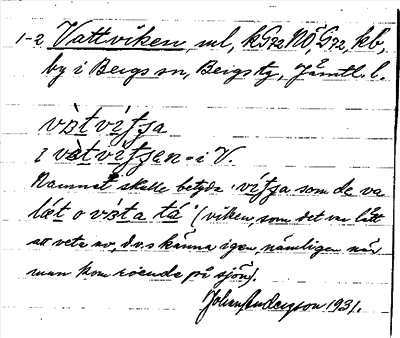 1-2 Vattviken, ml, kG72NÖ, G72, kb,
by i Bergs sn, Bergs tg, Jämtl. l.
vàtvíʃa
i vàtvíʃen = i V.
Namnet skulle betyda 'víʃa som de va
læt o væta tá' (viken, som det var lätt
att veta av, d.v.s känna igen, nämligen när
man kom roende på sjön).
Johan Anderzson 1931.